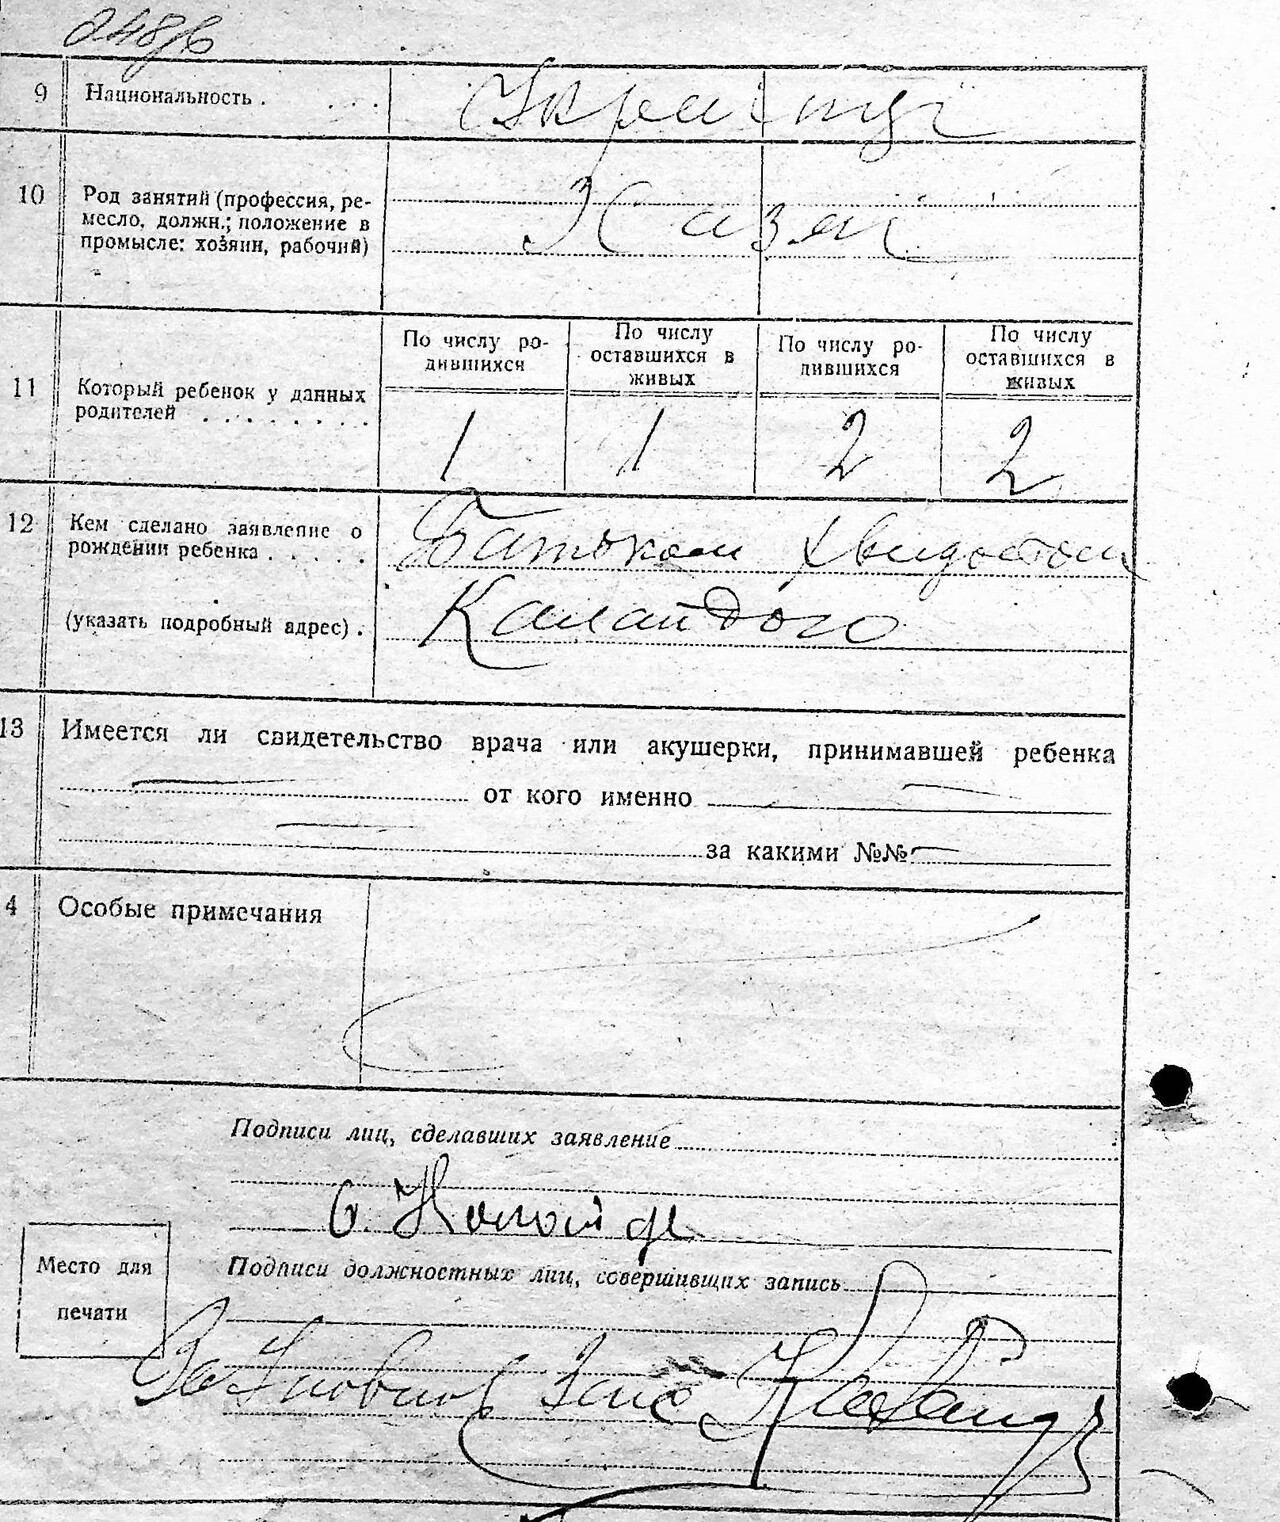 9 Национальность . Українці
10 Род занятий (профессия, ре-
месло, должн.; положение в
промысле: хозяин, рабочий)
По числу ро-
дившихся
По числу
оставшихся в
живых
По числу ро-
дившихся
По числу
оставшихся в
живых
11 Который ребенок у данных
родителей . . . . . . . .
1 1 2 2
12 Кем сделано заявление о
рождении ребенка . . . . .
Батьком
(указать подробный адрес) .
13 Имеется ли свидетельство врача или акушерки, принимавшей ребенка
от кого именно
за какими №№
4 Особые примечания
Подписи лиц, сделавших заявление
Место для
печати
Подписи должностных лиц, совершивщих запись
Загс